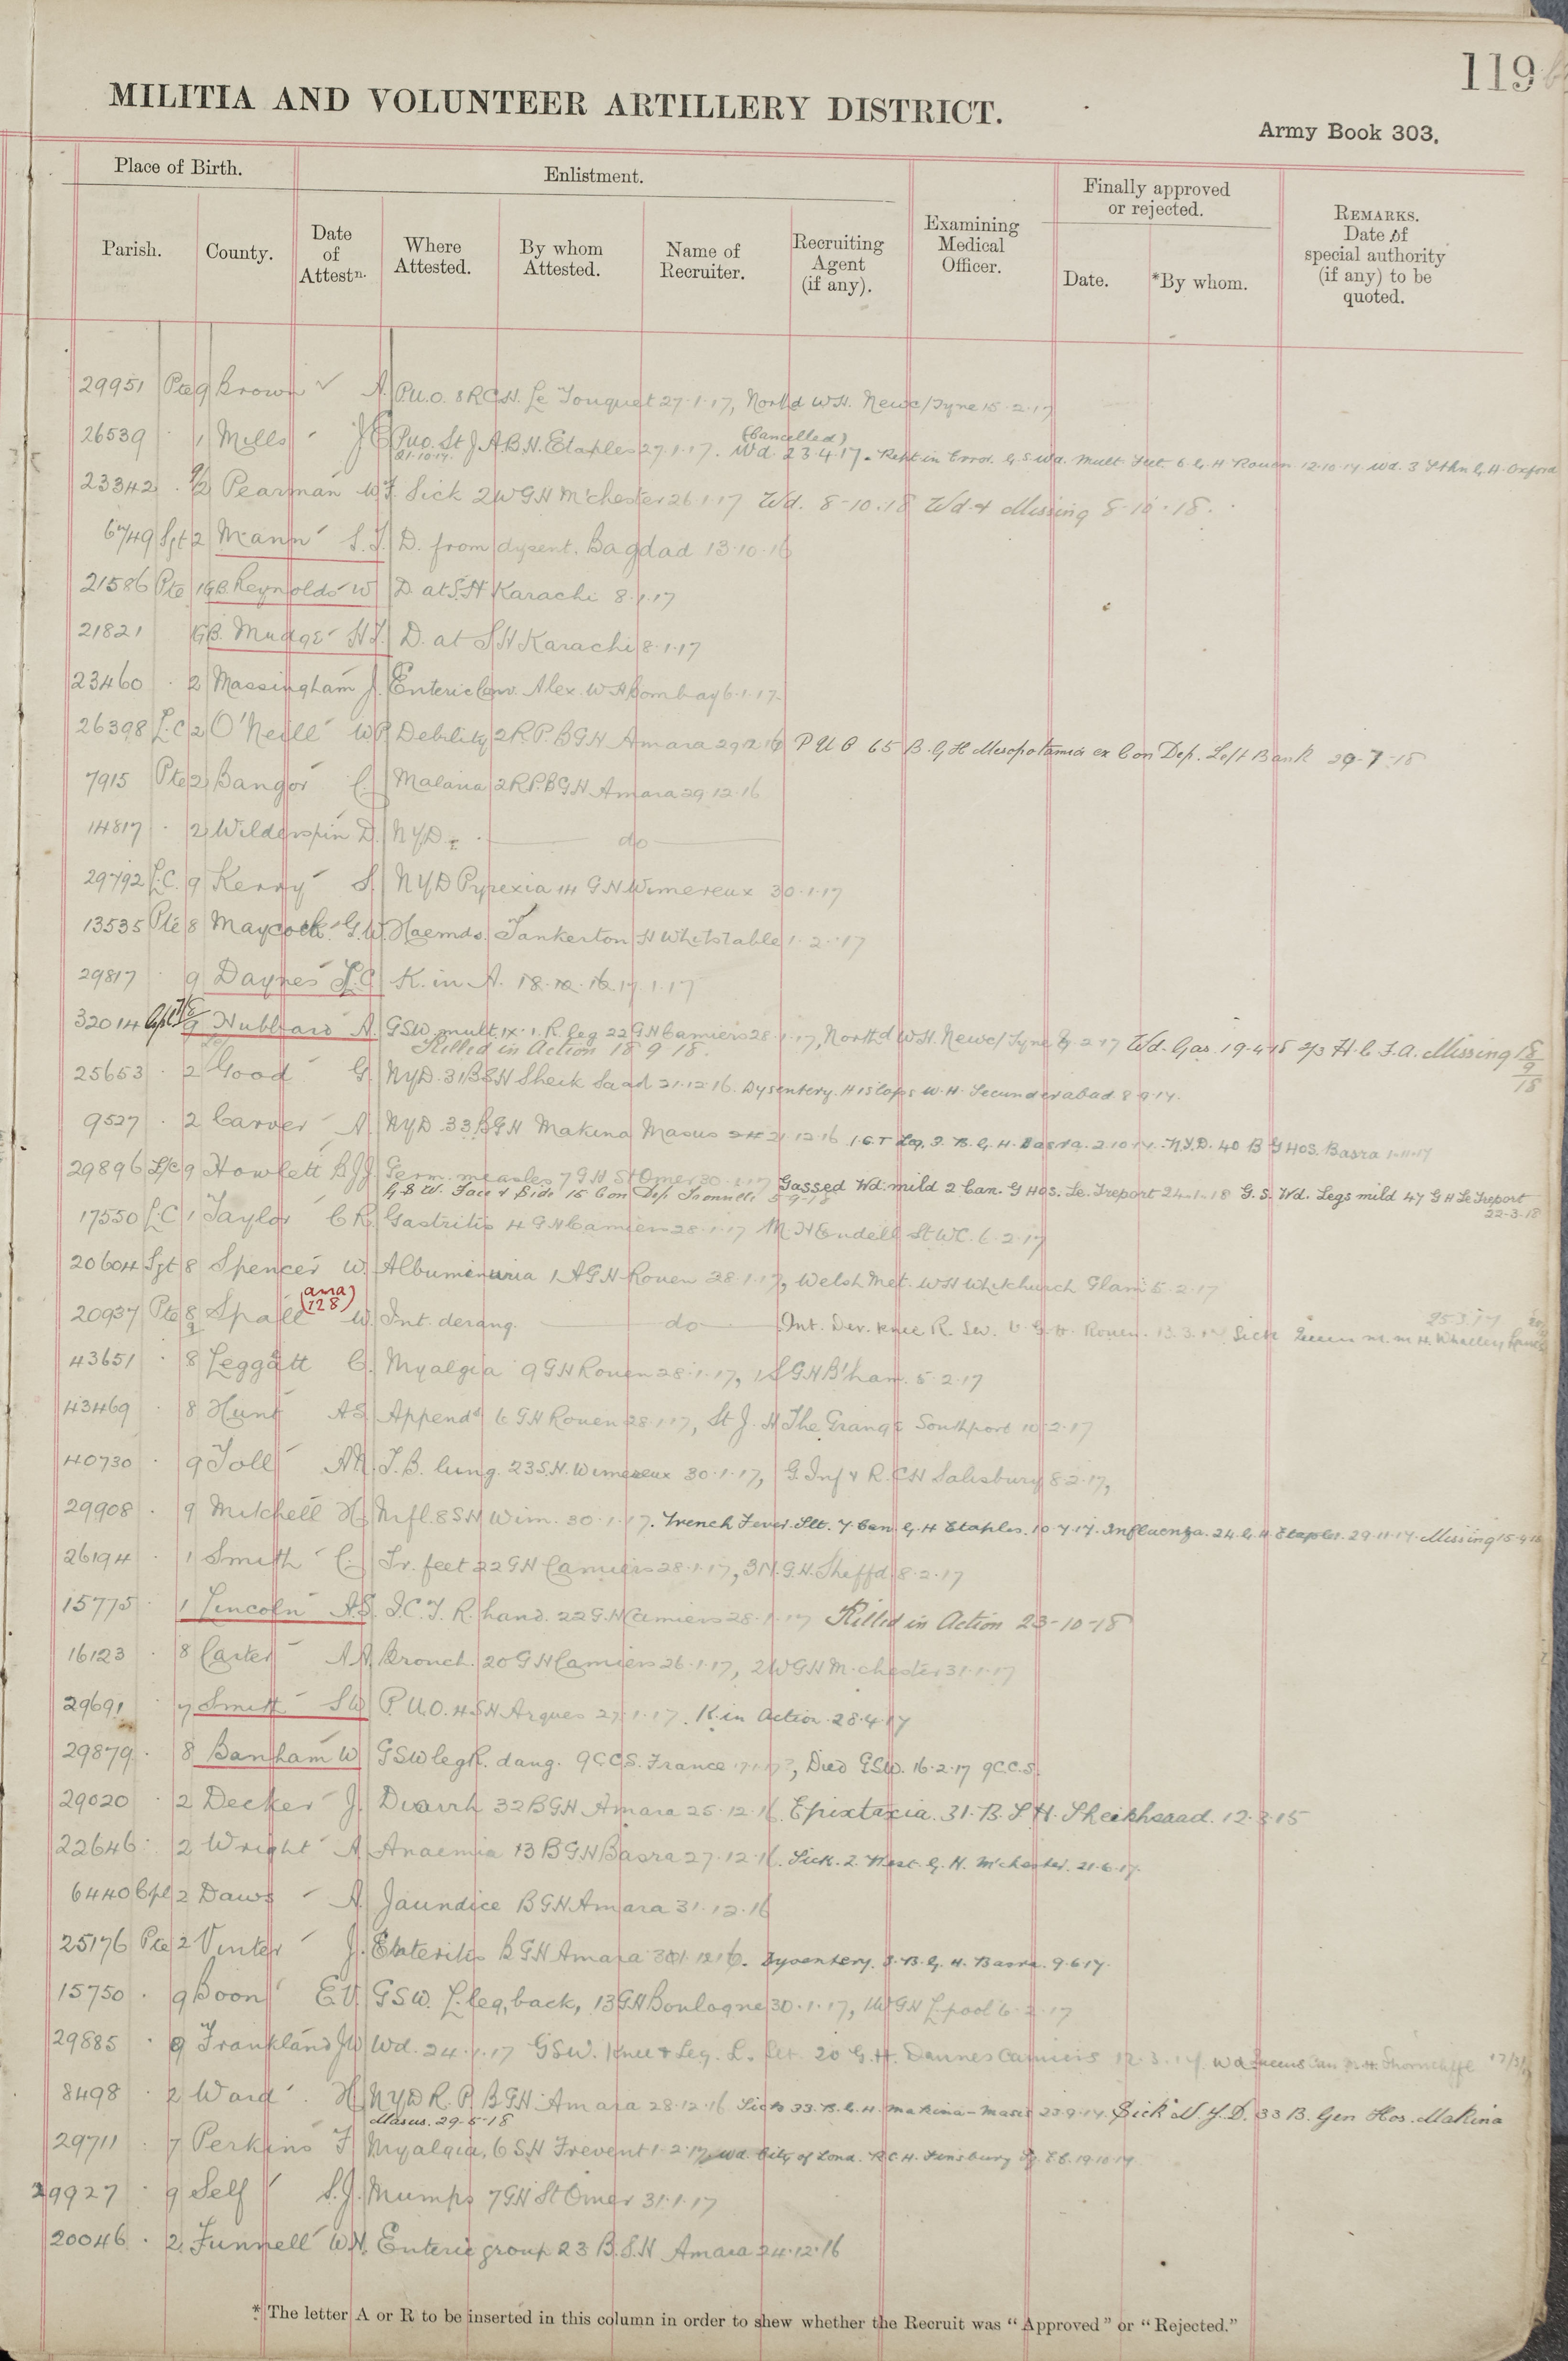 119
MILITIA AND VOLUNTEER ARTILLERY DISTRICT.
Army Book 303.
Place of Birth.
Enlistment.
Finally approved or rejected.
Parish.
County.
Date of Attestn.
Where Attested.
By whom Attested.
Name of Recruiter.
Recruiting Agent (if any).
Examining Medical Officer.
Date.
*By whom.
REMARKS. Date of special authority (if any) to be quoted.
29951 Pte 9 Brown A. P.U.O. 8 RCH. Le Touquet 27.1.17, North'd W.H. Newc/Tyne 15.2.17
(Cancelled)
26539 1 Mills J C P.u.o. St J.A.B.H. Etaples 27.1.17. Wd. 23.4.17. Rept in Error. G.S.Wd. Mult. 6.G.H. Rouen 12.10.17 Wd. 3 Sthn G.H. Oxford
21.10.17.
23342 Pearman W.J. Sick 2WGH M'chester 26.1.17 Wd. 8-10.18 Wd. & Missing 8-10-18.
6749 Sgt 2 Mann S.J. D. from dysent. Bagdad 13.10.16
21586 Pte 1GB. Reynolds W D. at S.H Karachi 8.1.17
21821 1GB. Mudge H.J. D. at S H Karachi 8.1.17
23460 2 Massingham J. Enteric Conv. Alex. W H Bombay 6.1.17.
26398 L.C 2 O'Neill W P Debility 2R.P.BGH Amara 29.12.16 P U O 65 B.G H Mesopotamia ex Con Dep. Left Bank 29-7-18
7915 Pte 2 Bangor C. Malaria 2R.P.BGH Amara 29.12.16
14817 2 Wilderspin D. NYD. do
29792 L.C. 9 Kerry S. NYD Pyrexia 14 GH Wimereux 30.1.17
13535 Pte 8 Maycock G.W. Haemds. Tankerton H Whitstable 1.2.17
29817 9 Daynes L.C K. in A. 18.12.16. 17.1.17
32014 Cpl 9 Hubbard A. GSW mult. 1x.1. R. leg 22GH Camiers 28.1.17, North'd W.H. Newc/Tyne 2.17 Wd. Gas 19-4-18 2/3 H.C.F.A. Missing 18/9/18
Killed in Action 18 9 18.
25653 2 Good G. NYD. 31BSH Sheik Saad 21.12.16. Dysentery. Hislops W.H. Secunderabad 8.9.17.
9527 2 Carver A. NYD. 33 BGH Makina Masus 21.12.16 I.C.T Leg. 3. B.G.H. Basra. 2.10.17. N.Y.D. 40 B G Hos. Basra 1-11-17
29896 L/C 9 Howlett B.J.J. Germ. measles 7GH St Omer 30.1.17 Gassed Wd. mild 2 Can. G Hos. Le Treport 24-1-18 G.S. Wd. Legs mild 47 G H Le Treport
22-3-18
G S W. Face & Side 15 Con Dep Trouville 5-9-18
17550 L.C 1 Taylor C R. Gastritis 4 G H Camiers 28.1.17 M. H Endell St WC. 6.2.17
20604 Sgt 8 Spencer W. Albuminuria 1 AGH Rouen 28.1.17, Welsh Met. WH Whitchurch Glam 5.2.17
(ama 128)
20937 Pte 8 Spall W. Int. derang. do Int. Der. knee R. Sev. 6 G.H. Rouen. 13.3.17 Sick Queen M. M H. Whalley Lancs
25.3.17
43651 8 Leggatt C. Myalgia 9 GH Rouen 28.1.17, 1 S GH B'ham. 5.2.17
43469 8 Hunt A S Appends 6 GH Rouen 28.1.17, St J. H The Grange Southport 10.2.17
40730 9 Toll A N. T.B. lung. 23S.H. Wimereux 30.1.17, G. Inf & R.CH Salisbury 8.2.17,
29908 9 Mitchell H. Infl. 8SH Wim. 30.1.17. Trench Fever. Slt. 7. Can. G.H Etaples. 10.7.17. Influenza. 24.G.H Etaples. 29.11.17. Missing 15.4.18
26194 1 Smith C. Tr. feet 22GH Camiers 28.1.17, 3N.G.H. Sheffd. 8.2.17
15775 1 Lincoln A S. I.C.T. R. hand. 22G.H Camiers 28.1.17 Killed in Action 23-10-18
16123 8 Carter A A. Bronch. 20GH Camiers 26.1.17, 2WGH M.chester 31.1.17
29691 7 Smith S W P.U.O. 4 SH Arques 27.1.17. K. in Action 28.4.17
29879 8 Banham W GSW leg R. dang. 9CCS. France, Died GSW. 16.2.17 9C.C.S.
29020 2 Decker J. Diarrh 32BGH Amara 25.12.16. Epixtaxia. 31.B.S.H. Sheikhsaad. 12.3.15
22646 2 Wright A Anaemia 13 BGH Basra 27.12.16. Sick. 2. West. G.H. M'chester. 21.6.17.
6440 Cpl 2 Daws A. Jaundice BGH Amara 31.12.16
25176 Pte 2 Vinter J. Enteritis BGH Amara 12.16. Dysentery. 3.B.G.H. Basra. 9.6.17.
15750 9 Boon E.V. GSW. L. leg, back, 13GH Boulogne 30.1.17, 1WGH L'pool 6.2.17
29885 9 Frankland J W Wd. 24.1.17 GSW. Knee & Leg. L. 20 G.H. Dannes Camiers 12.3.17 Wd Queens Can M.H. Shorncliffe 17/3/17
8498 2 Ward H. NYD R.P. BGH Amara 28.12.16 Sick 33.B.G.H. Makina-Masus 23.9.17. Sick N.Y.D. 33 B. Gen Hos. Makina
Masus. 29-5-18
29711 7 Perkins F Myalgia. 6 SH Frevent 1.2.17 Wd. City of Lond. R.C.H. Finsbury Sq. E.C. 19.10.17
29927 9 Self S.J. Mumps 7GH St Omer 31.1.17
20046 2. Funnell W.H. Enteric group 23 B.S.H Amara 24.12.16
* The letter A or R to be inserted in this column in order to shew whether the Recruit was "Approved" or "Rejected."